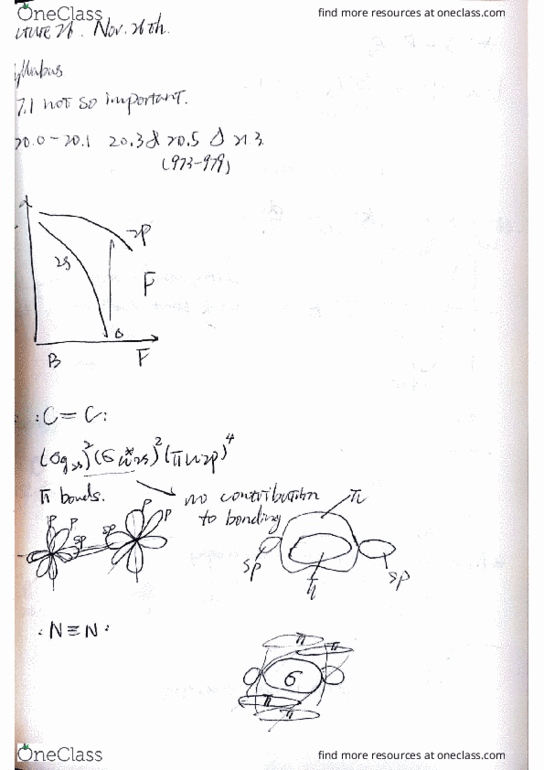 OneClass find more resources at oneclass.com
Nov. 26th.
yllabus
7.1 not so important.
20.0-20.1 20.3 & 20.5
(973-979)
2p
2s
F
B F
:C=C:
(σg2s)²(σu*2s)²(πu2p)⁴
π bonds. no contribution
to bonding
P P P P
sp sp
π
sp π sp
:N≡N:
π π
σ
π
π
OneClass find more resources at oneclass.com